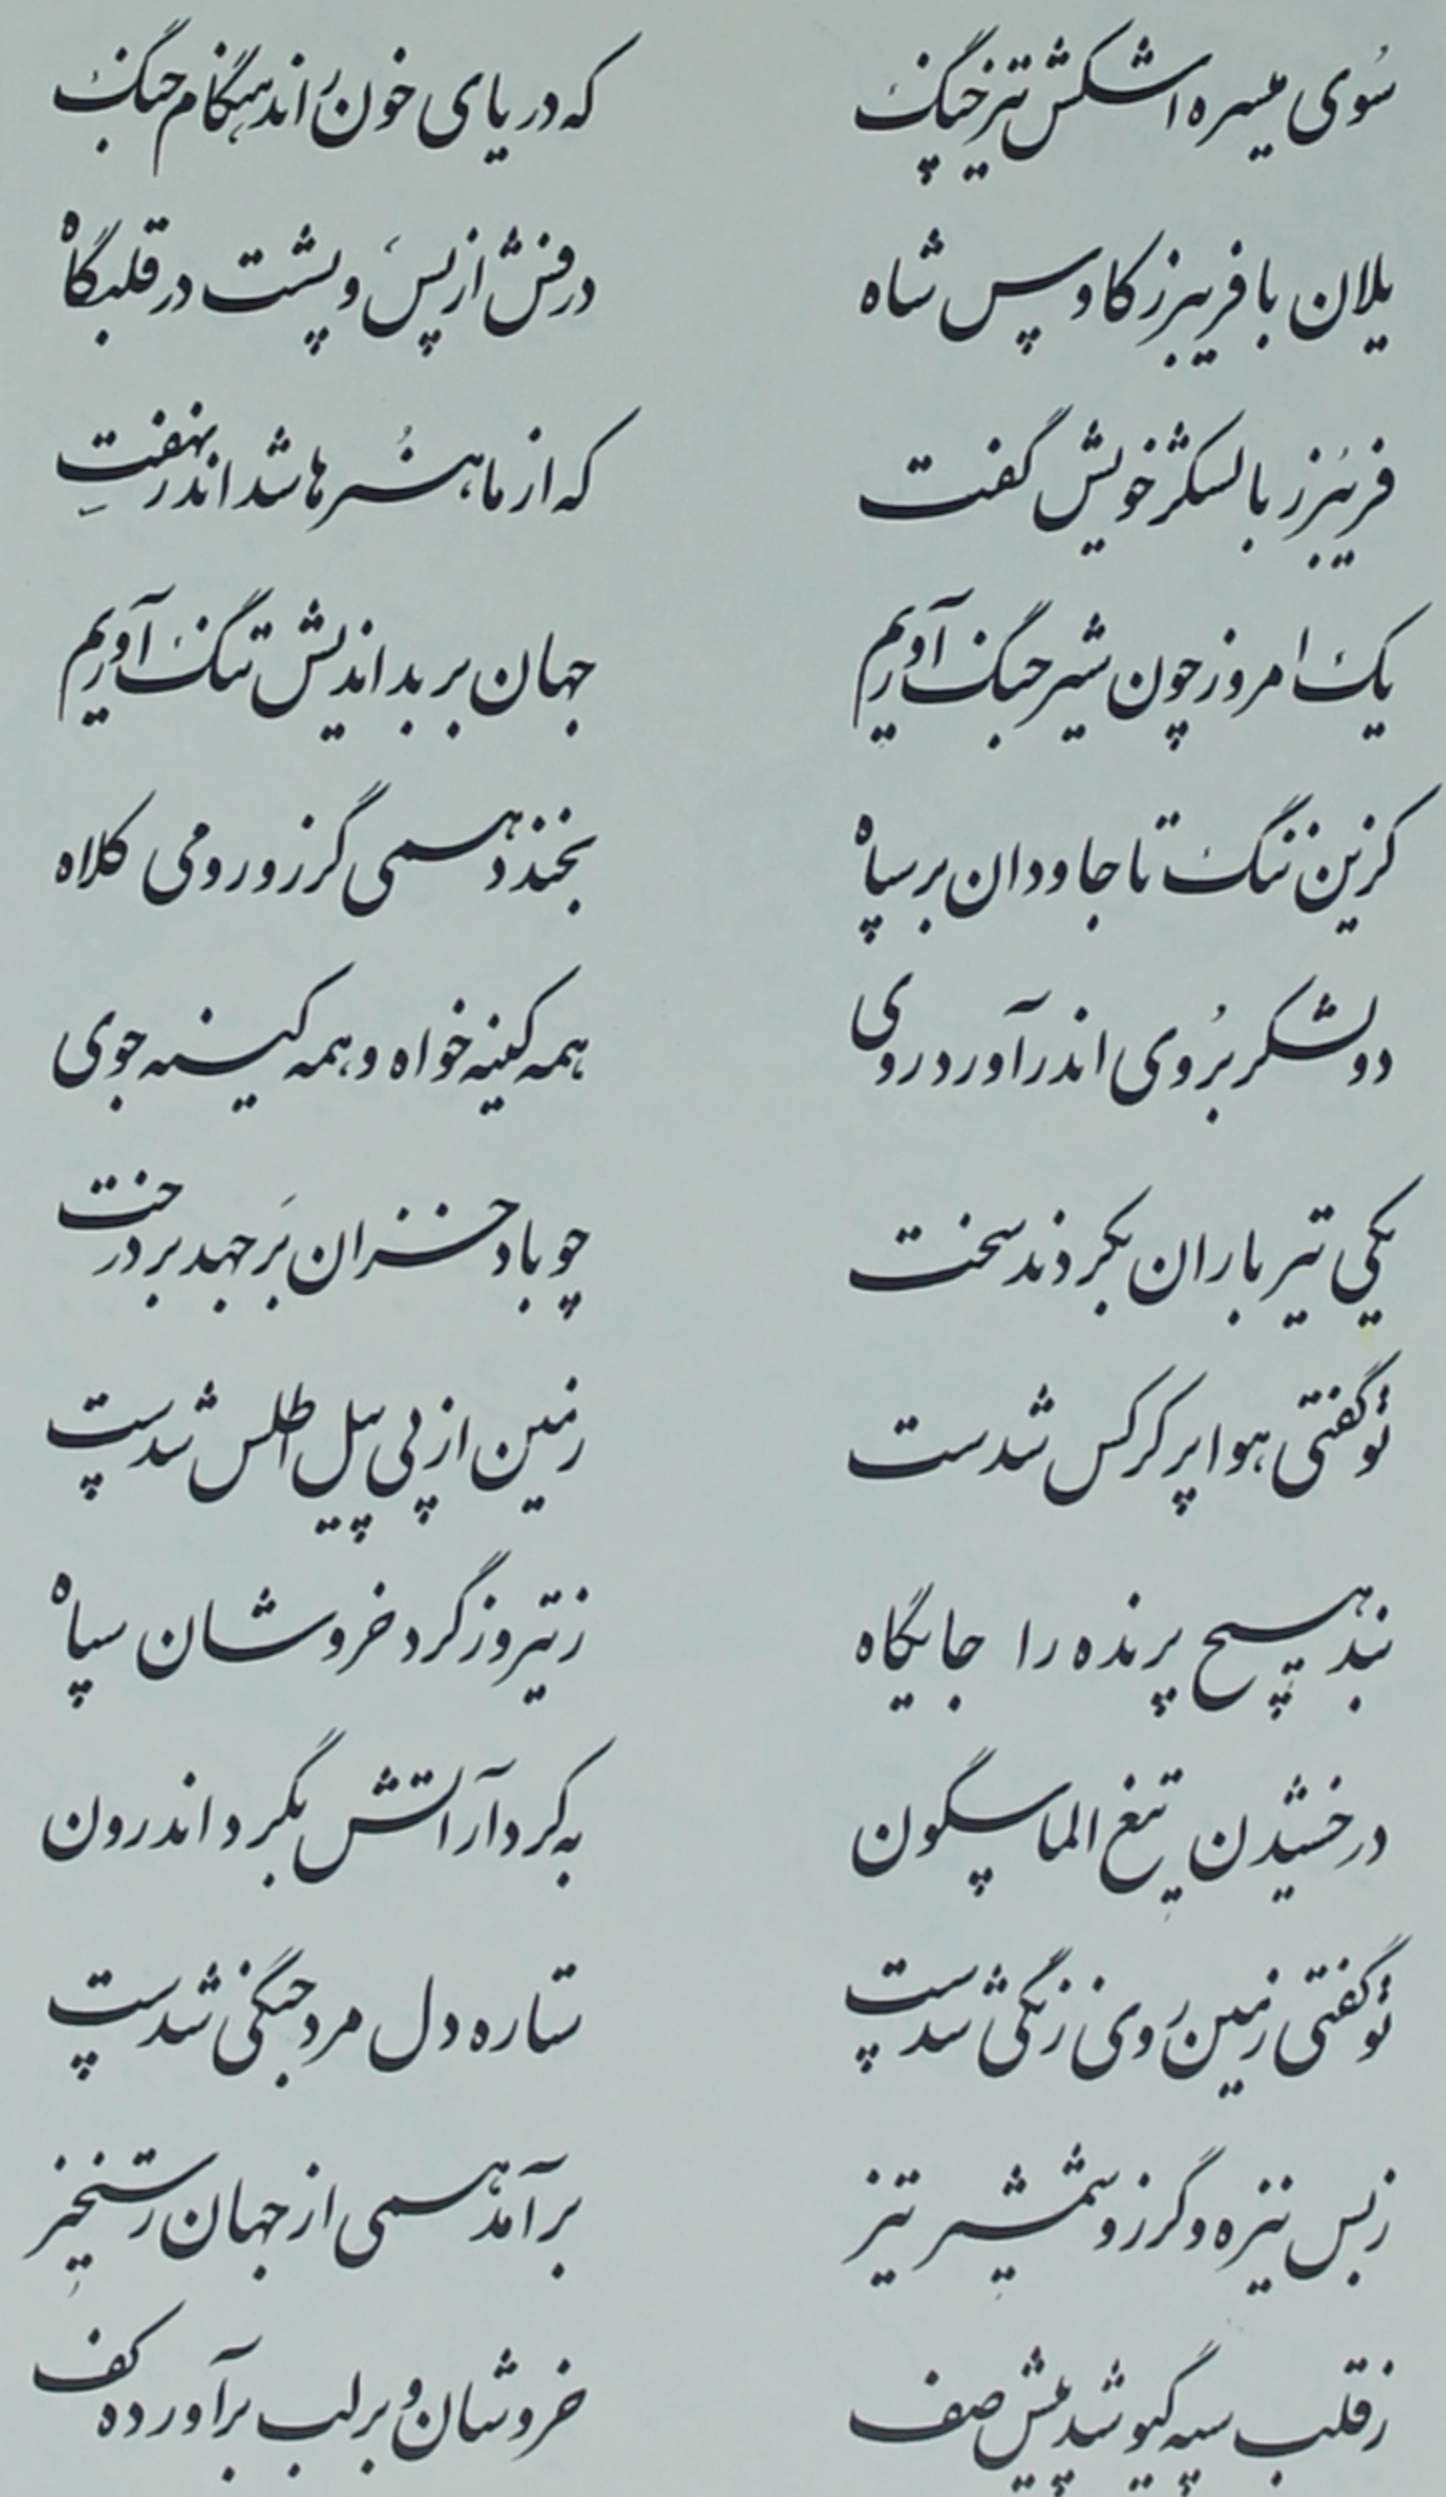 سُوی میسره اشکش تیزچنگ که دریای خون راند هنگام جنگ
یلان با فریبرز کاوس شاه درفش از پس و پشت در قلبگاه
فریبُرز با لشکر خویش گفت که از ما هنُرها شد اندر نهفت
یک امروز چون شیر جنگ آوریم جهان بر بداندیش تنگ آوریم
کزین ننگ تا جاودان بر سپاه بخندد همی گرز و رومی کلاه
دو لشکر برُوی اندر آورد روی همه کینه خواه و همه کینه جوی
یکی تیر باران بکردند سخت چو باد خزان بَر جهد بر درخت
تو گفتی هوا پر کرکس شدست زمین از پی پیل اطلس شدست
نبد هیچ پرنده را جایگاه ز تیر و ز گرد خروشان سپاه
درخشیدن تیغ الماسگون به کردار آتش بگرد اندرون
تو گفتی زمین روی زنگی شدست ستاره دل مرد جنگی شدست
ز بس نیزه و گرز و شمشیر تیز برآمد همی از جهان رستخیز
ز قلب سپه گیو شد پیش صف خروشان و بر لب برآورده کف